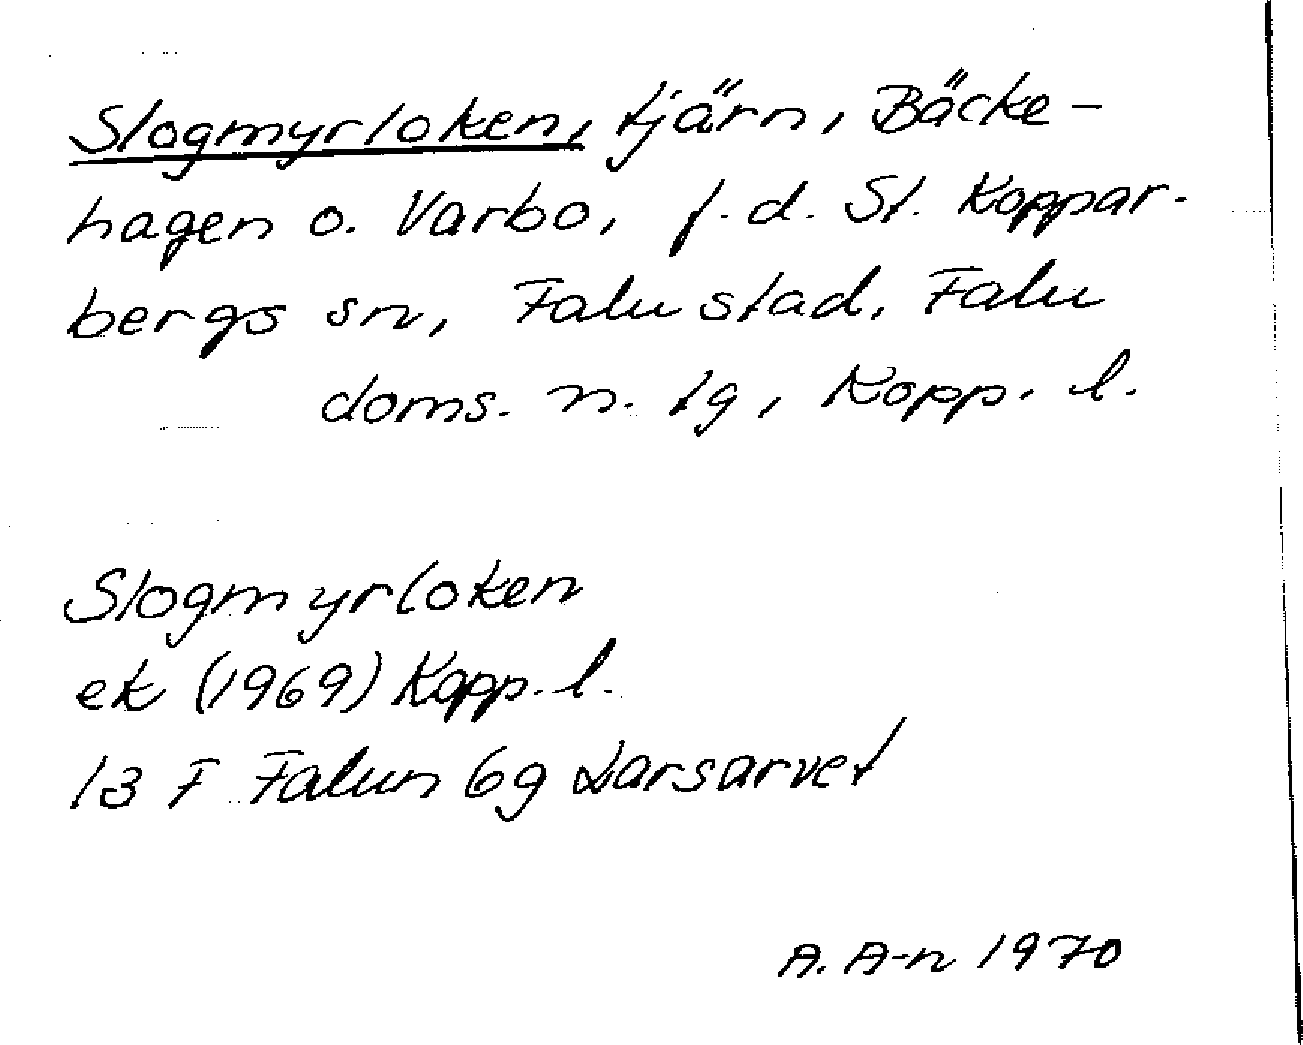 Slogmyrloken, tjärn, Bäcke-
hagen o. Varbo, f.d. St. Koppar-
bergs sn, Falu stad, Falu
doms. n. tg, Kopp. l.
Slogmyrloken
ek (1969) Kopp. l.
13 F Falun 6g Larsarvet
A. A-n 1970